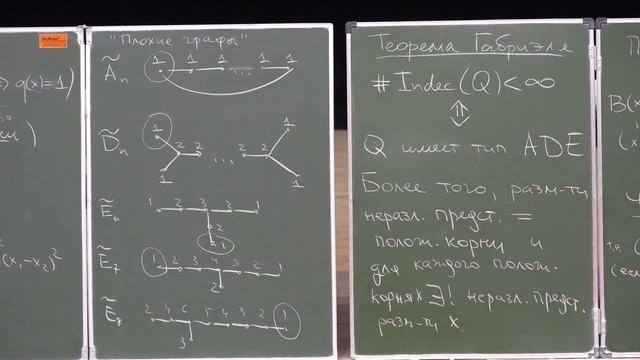 ⇒ q(x)=1)
)
(x₁-x₂)²
"Плохие графы"
Ãₙ 1 1 1 ... 1 1
D̃ₙ 1 2 2 ... 2 1
1 1
Ẽ₆ 1 2 3 2 1
2
1
Ẽ₇ 1 2 3 4 3 2 1
2
Ẽ₈ 2 4 6 5 4 3 2 1
3
Теорема Габриэля
# Indec(Q) < ∞
⇕
Q имеет тип ADE
Более того, разм-ти
неразл. предст. =
полож. корни и
для каждого полож.
корня x ∃! неразл. предст.
разм-ти x.
B(x
(x
т.е. (
(есл